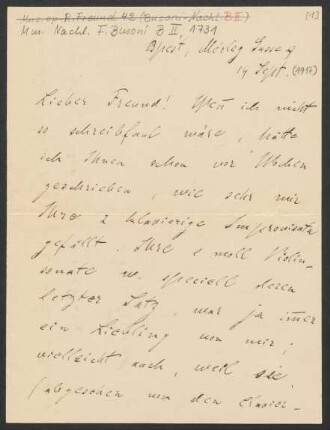 Mus. ep. R. Freund 42 (Busoni-Nachl. B II) [1]
Mus. Nachl. F. Busoni B II, 1731
Bpest, Mérleg Gasse 9
14 Sept. (1917)
Lieber Freund! Wen̄ ich nicht
so schreibfaul wäre, hätte
ich Ihnen schon vor Wochen
geschrieben, wie sehr mir
Ihre 2 klavierige Improvisata
gefällt. Ihre e moll Violin-
sonate u. speciell deren
letzter Satz, war ja im̄er
ein Liebling von mir;
vielleicht auch, weil sie
(abgesehen von den Clavier-